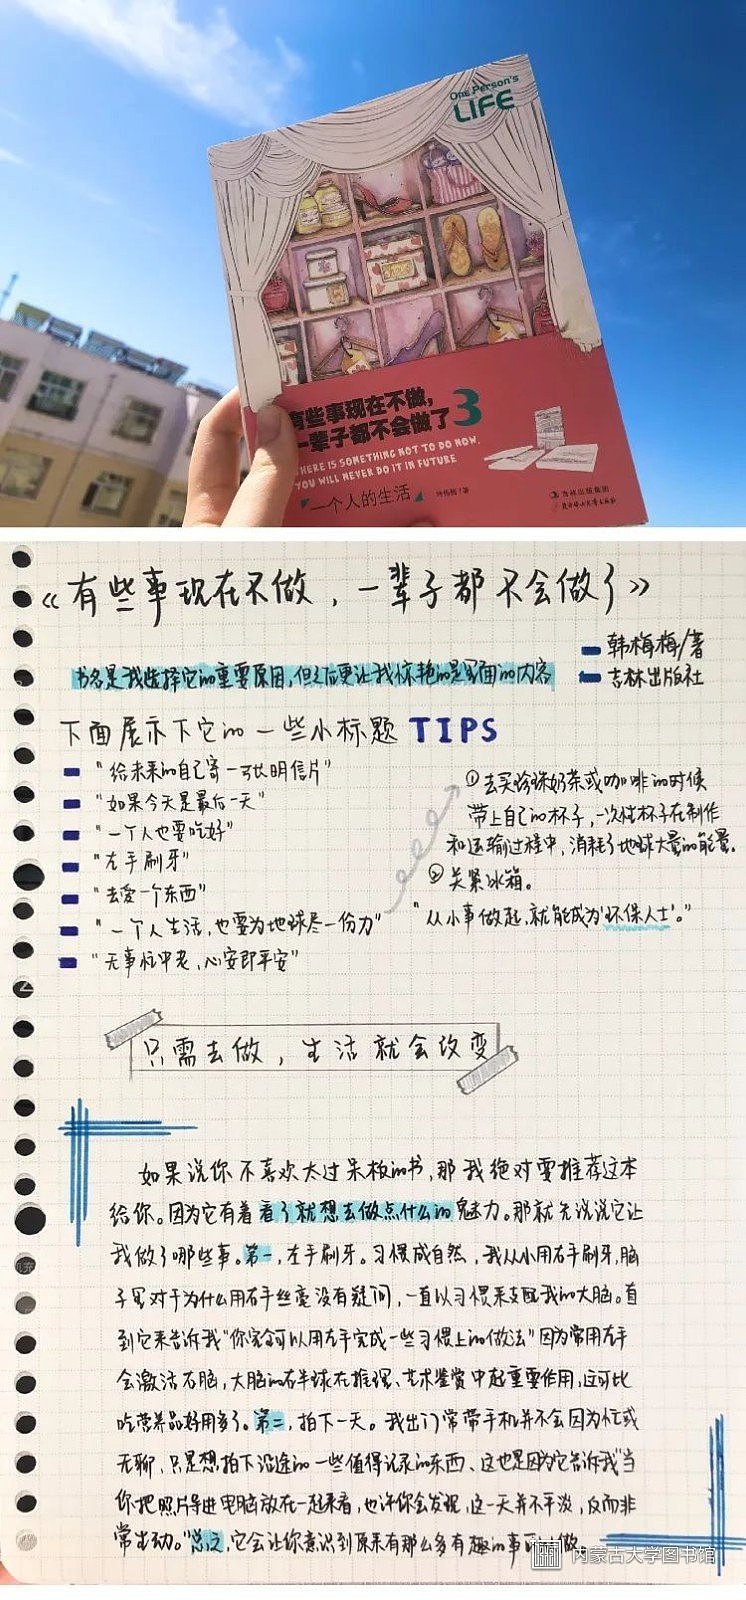 One Person's
LIFE
有些事现在不做,
一辈子都不会做了3
THERE IS SOMETHING NOT TO DO NOW,
YOU WILL NEVER DO IT IN FUTURE
一个人的生活
《有些事现在不做，一辈子都不会做了》
韩梅梅/著
书名是我选择它的重要原因,但之后更让我惊艳的是里面的内容
吉林出版社
下面展示下它的一些小标题 TIPS
"给未来的自己寄一张明信片"
"如果今天是最后一天"
"一个人也要吃好"
"左手刷牙"
"去爱一个东西"
"一个人生活,也要为地球尽一份力"
"无事忙中老,心安即平安"
①去买珍珠奶茶或咖啡的时候
带上自己的杯子,一次性杯子在制作
和运输过程中,消耗了地球大量的能量.
②关紧冰箱。
"从小事做起,就能成为'环保人士'。"
只需去做，生活就会改变
如果说你不喜欢太过呆板的书,那我绝对要推荐这本
给你。因为它有着看了就想去做点什么的魅力。那就先说说它让
我做了哪些事。第一,左手刷牙。习惯成自然,我从小用右手刷牙,脑
子里对于为什么用右手丝毫没有疑问,一直以习惯来支配我的大脑。直
到它来告诉我"你完全可以用左手完成一些习惯上的做法"因为常用左手
会激活右脑,大脑的右半球在推理、艺术鉴赏中起重要作用,这可比
吃营养品好用多了。第二,拍下一天。我出门常带手机并不会因为忙或
无聊,只是想拍下沿途的一些值得记录的东西、这也是因为它告诉我"当
你把照片导进电脑放在一起来看,也许你会发现,这一天并不平淡,反而非
常生动。"总之,它会让你意识到原来有那么多有趣的事可以做
内蒙古大学图书馆